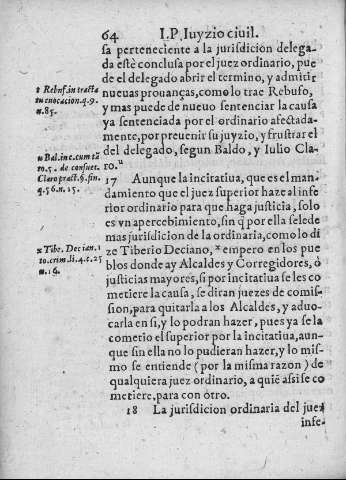 64 I.P. Iuyzio ciuil.
sa perteneciente a la jurisdicion delega-
da estè conclusa por el juez ordinario, pue
de el delegado abrir el termino, y admitir
nueuas prouanças, como lo trae Rebufo,
y mas puede de nueuo sentenciar la causa
ya sentenciada por el ordinario afectada-
mente, por preuenir su juyzio, y frustrar el
del delegado, segun Baldo, y Iulio Cla-
ro. u
17 Aunque la incitatiua, que es el man-
damiento que el juez superior haze al infe
rior ordinario para que haga justicia, solo
es vn apercebimiento, sin q̃ por ella se le de
mas jurisdicion de la ordinaria, como lo di
ze Tiberio Deciano, x empero en los pue
blos donde ay Alcaldes y Corregidores, ò
justicias mayores, si por incitatiua se les co
metiere la causa, se diran juezes de comis-
sion, para quitarla a los Alcaldes, y aduo-
carla en si, y lo podran hazer, pues ya se la
cometio el superior por la incitatiua, aun-
que sin ella no lo pudieran hazer, y lo mis-
mo se entiende (por la misma razon) de
qualquiera juez ordinario, a quiẽ assi se co
metiere, para con otro.
18 La jurisdicion ordinaria del juez
infe-
t Rebuf. in tracta
euocacion. q. 9.
n. 85.
u Bal. in c. cum tã
to. 5. de consuet.
Claro pract. §. fin.
q. 56. n. 15.
x Tibe. Decian. 1
to. crim. li. 4. c. 25
n. 19.